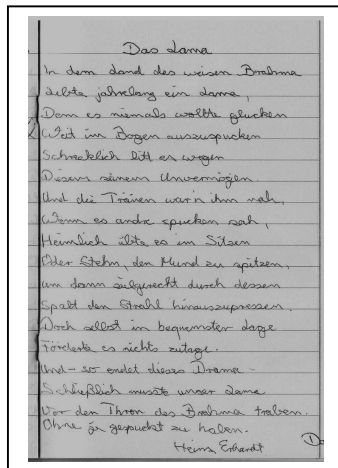 Das Lama
In dem Land des weisen Brahma
Lebte jahrelang ein Lama,
Dem es niemals wollte glucken
Weit im Bogen auszuspucken
Schrecklich litt es wegen
Diesem seinem Unvermögen.
Und die Tränen war'n ihm nah,
Wenn es andre spucken sah,
Heimlich übte es im Sitzen
Oder Stehn, den Mund zu spitzen,
um dann stilgerecht durch dessen
Spalt den Strahl hinauszupressen.
Doch selbst in bequemster Lage
Förderte es nichts zutage.
Und - so endet dieses Drama -
Schließlich musste unser Lama
Vor den Thron des Brahma traben.
Ohne je gespuckt zu haben.
Heinz Erhardt